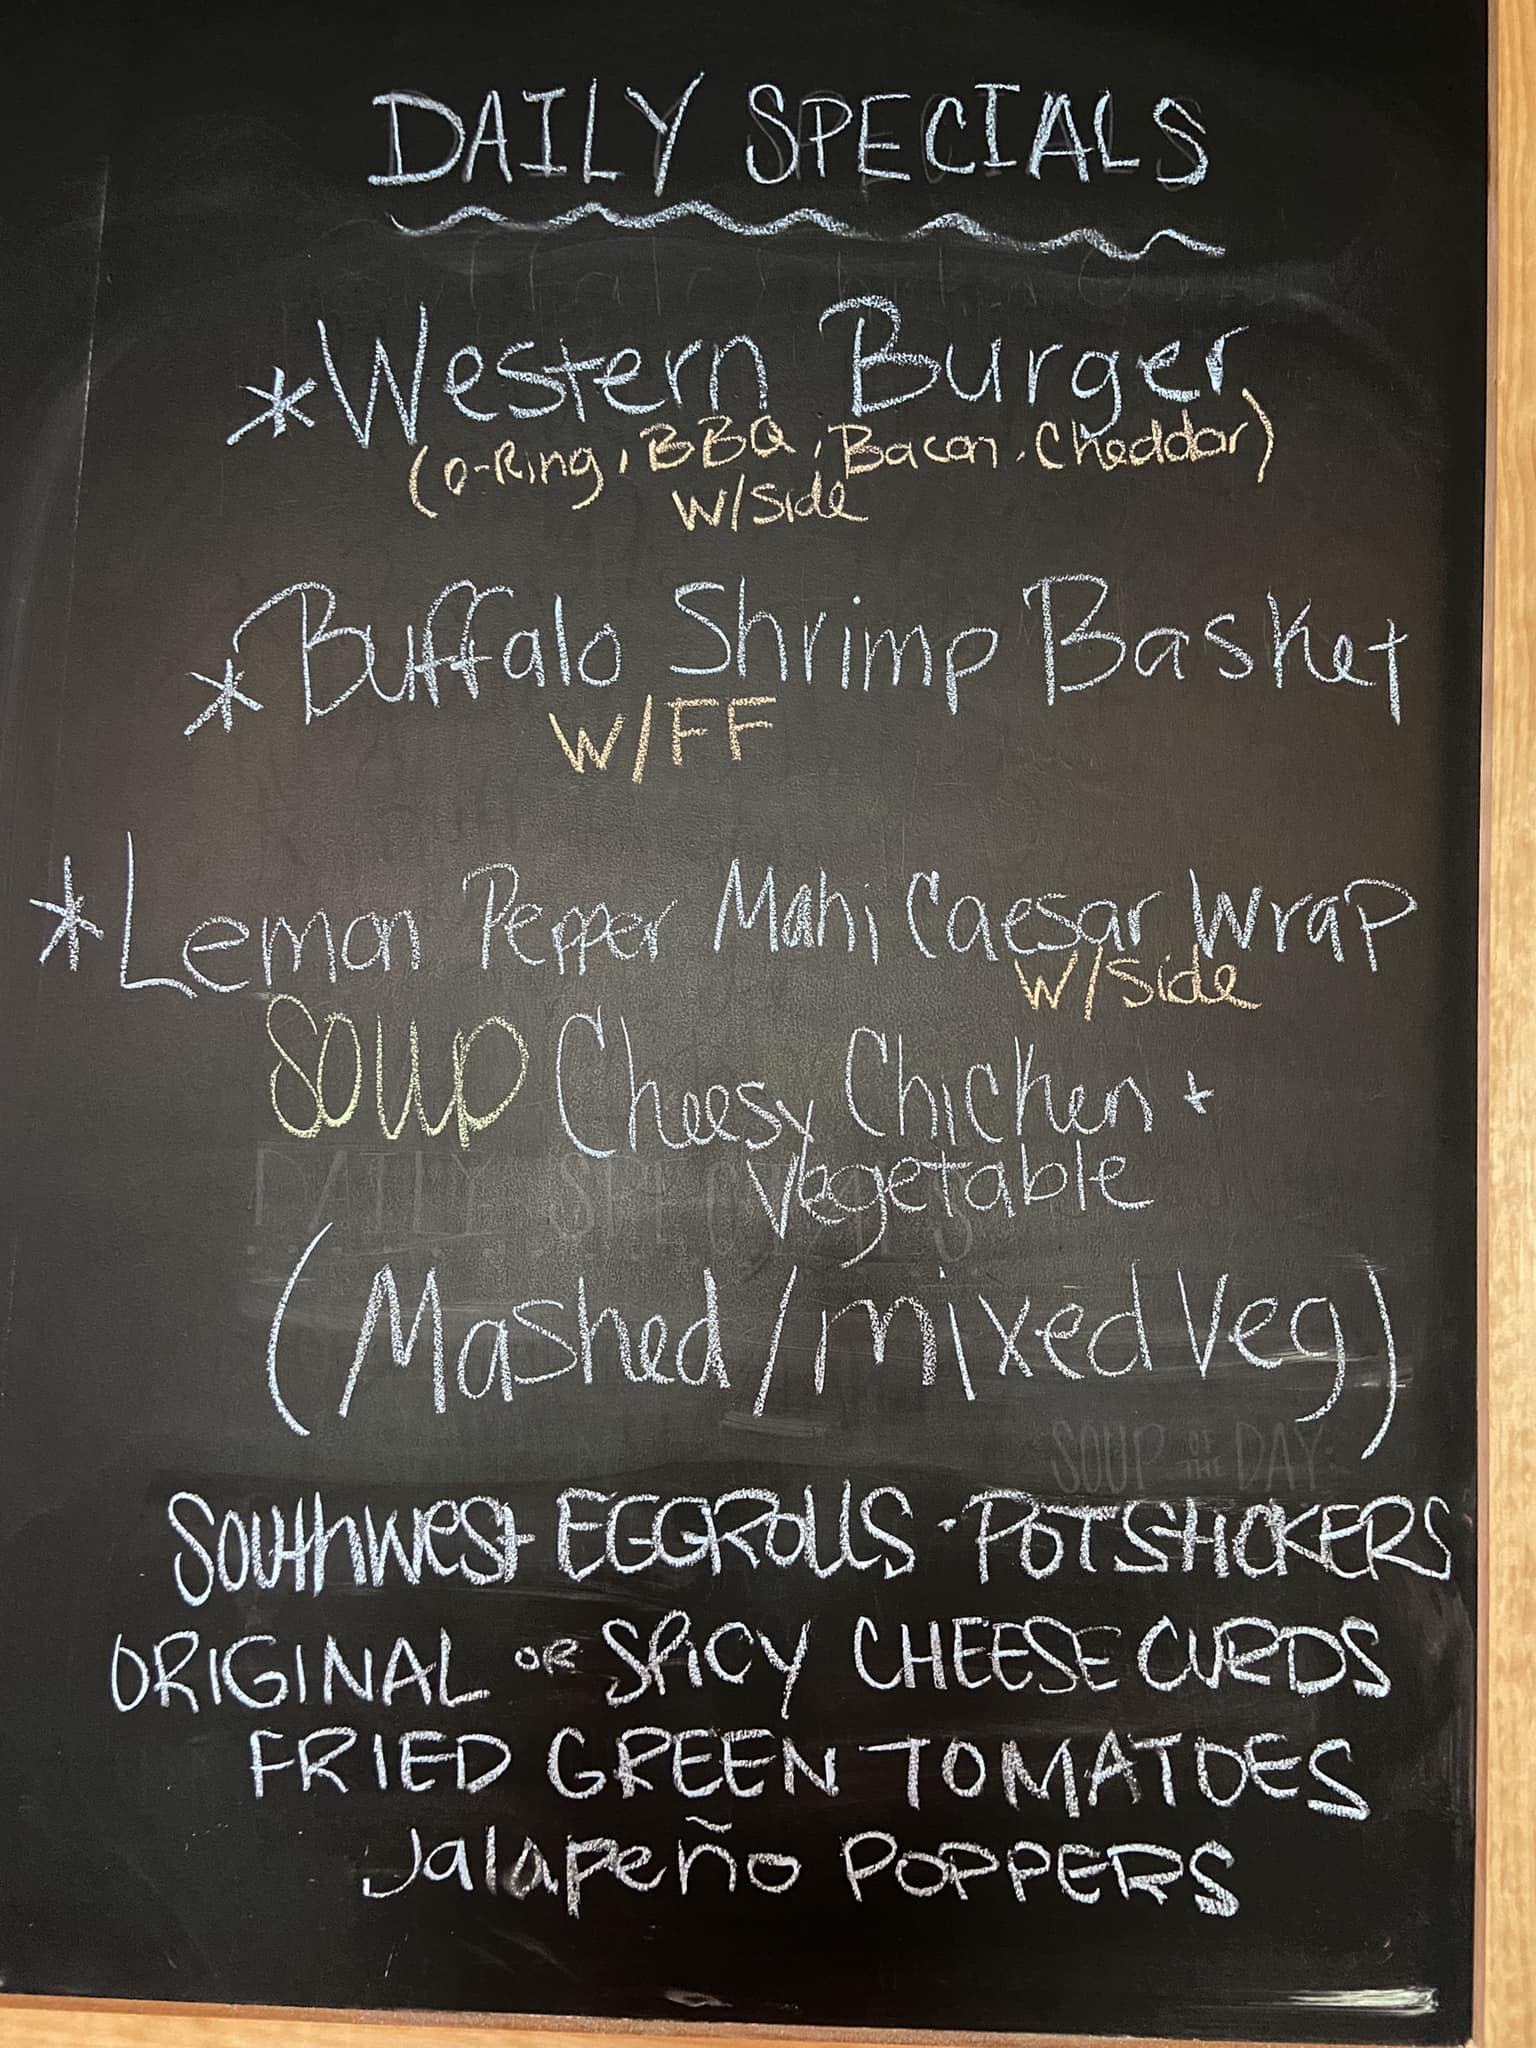 DAILY SPECIALS
*Western Burger
(O-Ring, BBQ, Bacon, Cheddar)
W/Side
*Buffalo Shrimp Basket
W/FF
*Lemon Pepper Mahi Caesar Wrap
W/Side
SOUP Cheesy Chicken +
Vegetable
DAILY SPECIALS
(Mashed/mixed Veg)
SOUP OF THE DAY:
Southwest EGGROLLS · POTSTICKERS
ORIGINAL OR SPICY CHEESE CURDS
FRIED GREEN TOMATOES
Jalapeño POPPERS